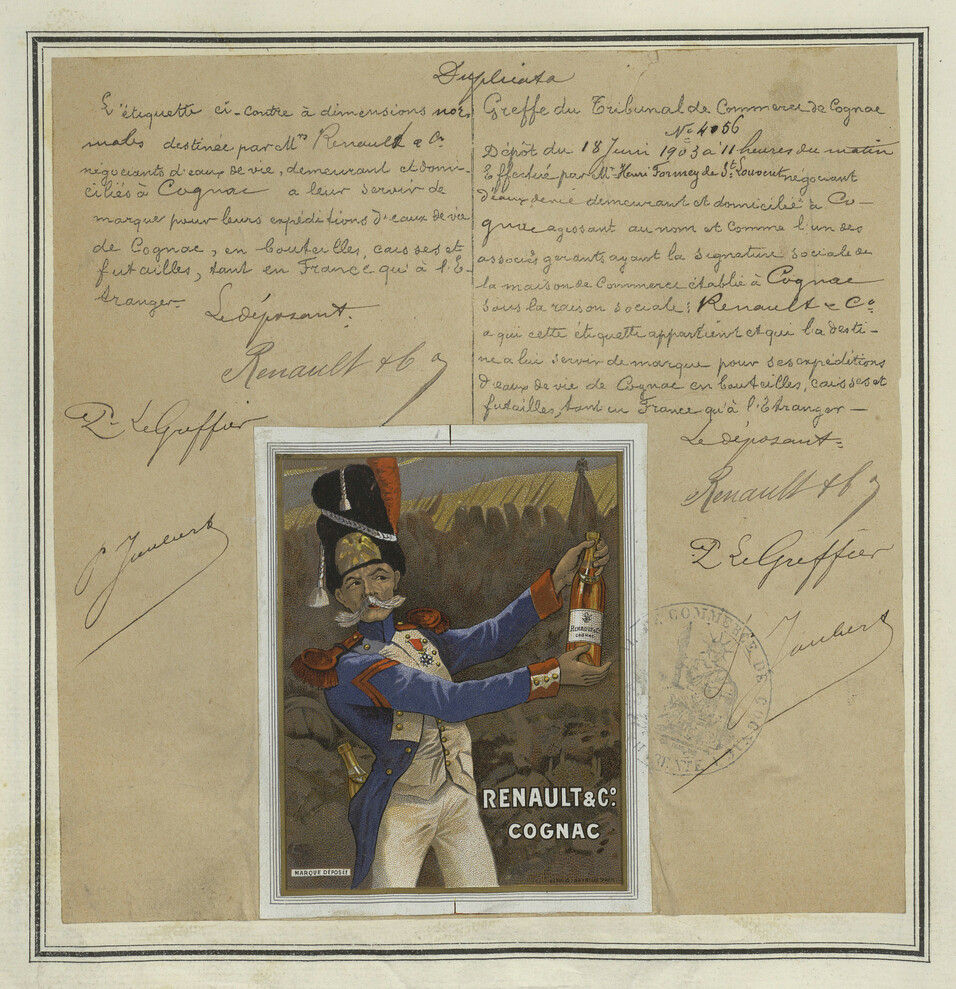 Duplicata
L'étiquette ci-contre à dimensions nor
males destinée par Mrs Renault & Co
négociants d'eaux de vie, demeurant et domi-
ciliés à Cognac a leur servir de
marque pour leurs expéditions d'eaux de vie
de Cognac, en bouteilles, caisses et
futailles, tant en France qu'à l'E-
tranger.
Le déposant:
Renault & Co
P. Le Greffier
Jaubert
Greffe du Tribunal de Commerce de Cognac
No 4156
Dépôt du 18 Juin 1903 à 11 heures du matin
Effectué par Mr Henri de St Louvent négociant
d'eaux de vie demeurant et domicilié à Co-
gnac agissant au nom et comme l'un des
associés gérants ayant la signature sociale de
la maison de Commerce établie à Cognac
sous la raison sociale: Renault & Co
a qui cette étiquette appartient et qui la desti-
ne a lui servir de marque pour ses expéditions
d'eaux de vie de Cognac en bouteilles, caisses et
futailles, tant en France qu'à l'Etranger —
Le déposant:
Renault & Co
P. Le Greffier
Jaubert
RENAULT & Co
COGNAC
RENAULT & Co.
COGNAC
MARQUE DÉPOSÉE
DE COMMERCE DE COGNAC
CHARENTE